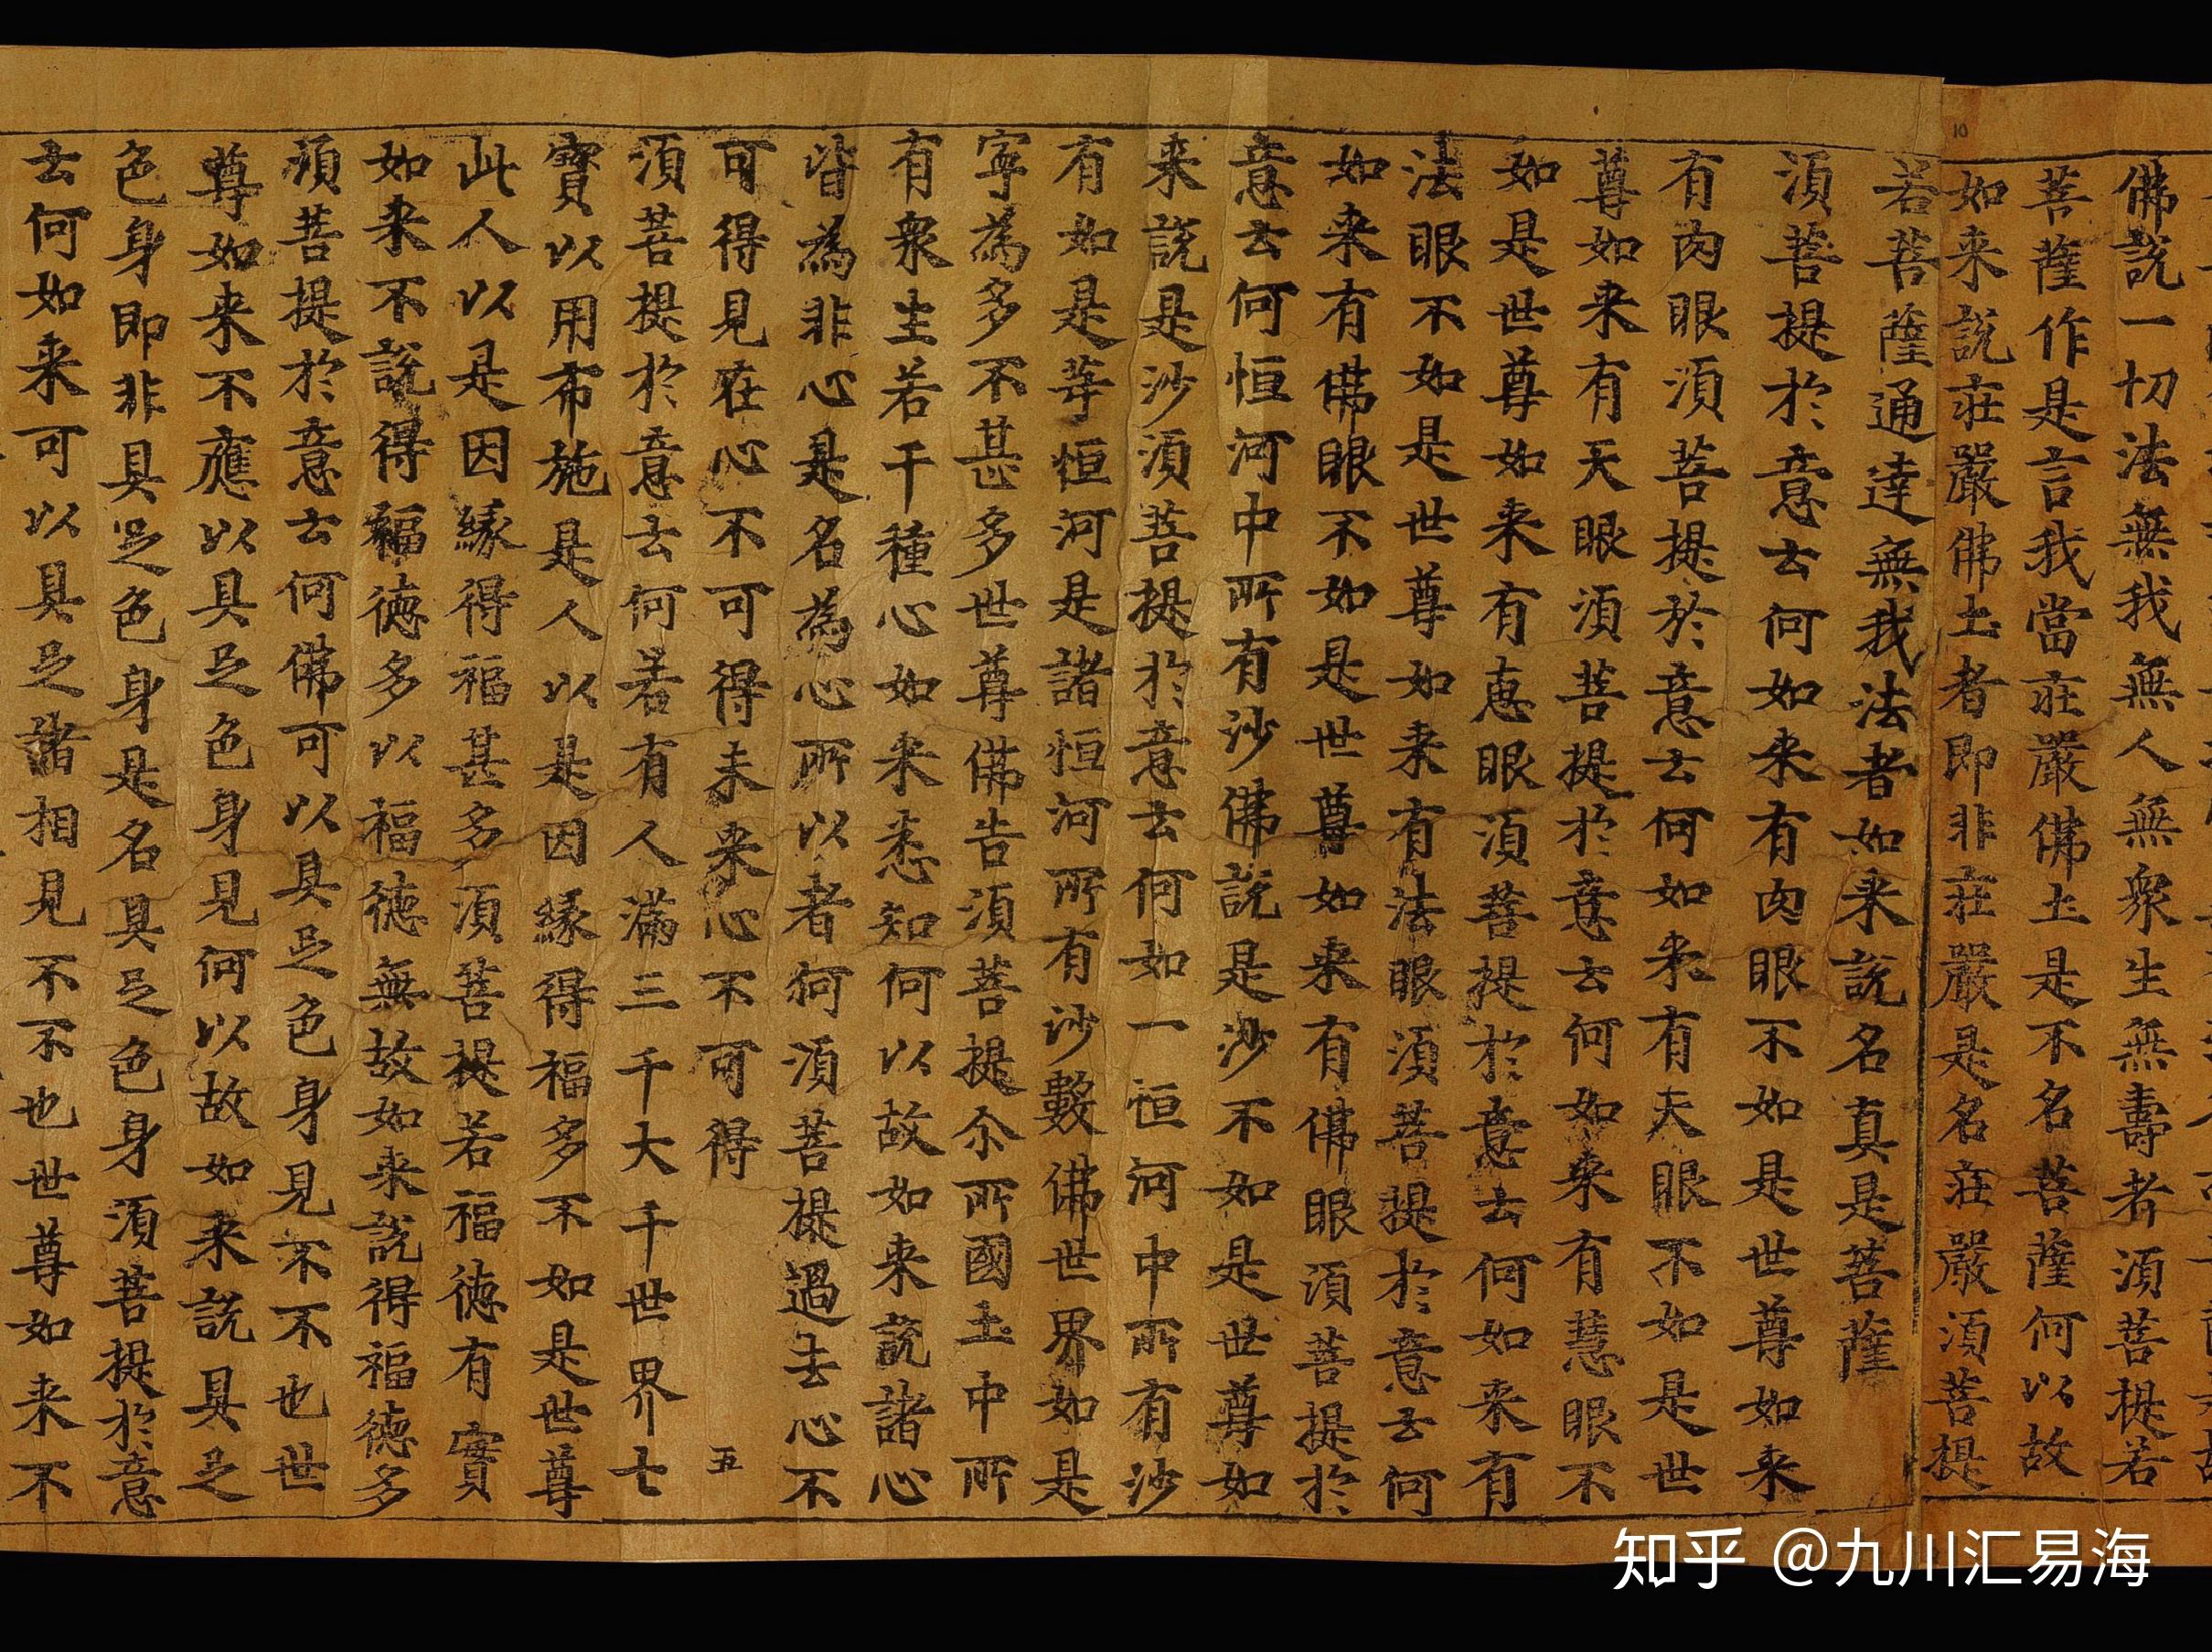 佛說一切法無我無人無衆生無壽者須菩提若
菩薩作是言我當莊嚴佛土是不名菩薩何以故
如来說莊嚴佛土者即非莊嚴是名莊嚴須菩提
10
若菩薩通達無我法者如来說名真是菩薩
須菩提於意云何如来有肉眼不如是世尊如来
有肉眼須菩提於意云何如来有天眼不如是世
尊如来有天眼須菩提於意云何如来有慧眼不
如是世尊如来有惠眼須菩提於意云何如来有
法眼不如是世尊如来有法眼須菩提於意云何
如来有佛眼不如是世尊如来有佛眼須菩提於
意云何恒河中所有沙佛說是沙不如是世尊如
来說是沙須菩提於意云何如一恒河中所有沙
有如是等恒河是諸恒河所有沙數佛世界如是
寧為多不甚多世尊佛告須菩提尒所國土中所
有衆生若干種心如来悉知何以故如来說諸心
皆為非心是名為心所以者何須菩提過去心不
可得見在心不可得未来心不可得
五
須菩提於意云何若有人滿三千大千世界七
寶以用布施是人以是因緣得福多不如是世尊
此人以是因緣得福甚多須菩提若福德有實
如来不說得福德多以福德無故如来說得福德多
須菩提於意云何佛可以具足色身見不不也世
尊如来不應以具足色身見何以故如来說具足
色身即非具足色身是名具足色身須菩提於意
云何如来可以具足諸相見不不也世尊如来不
知乎 @九川汇易海